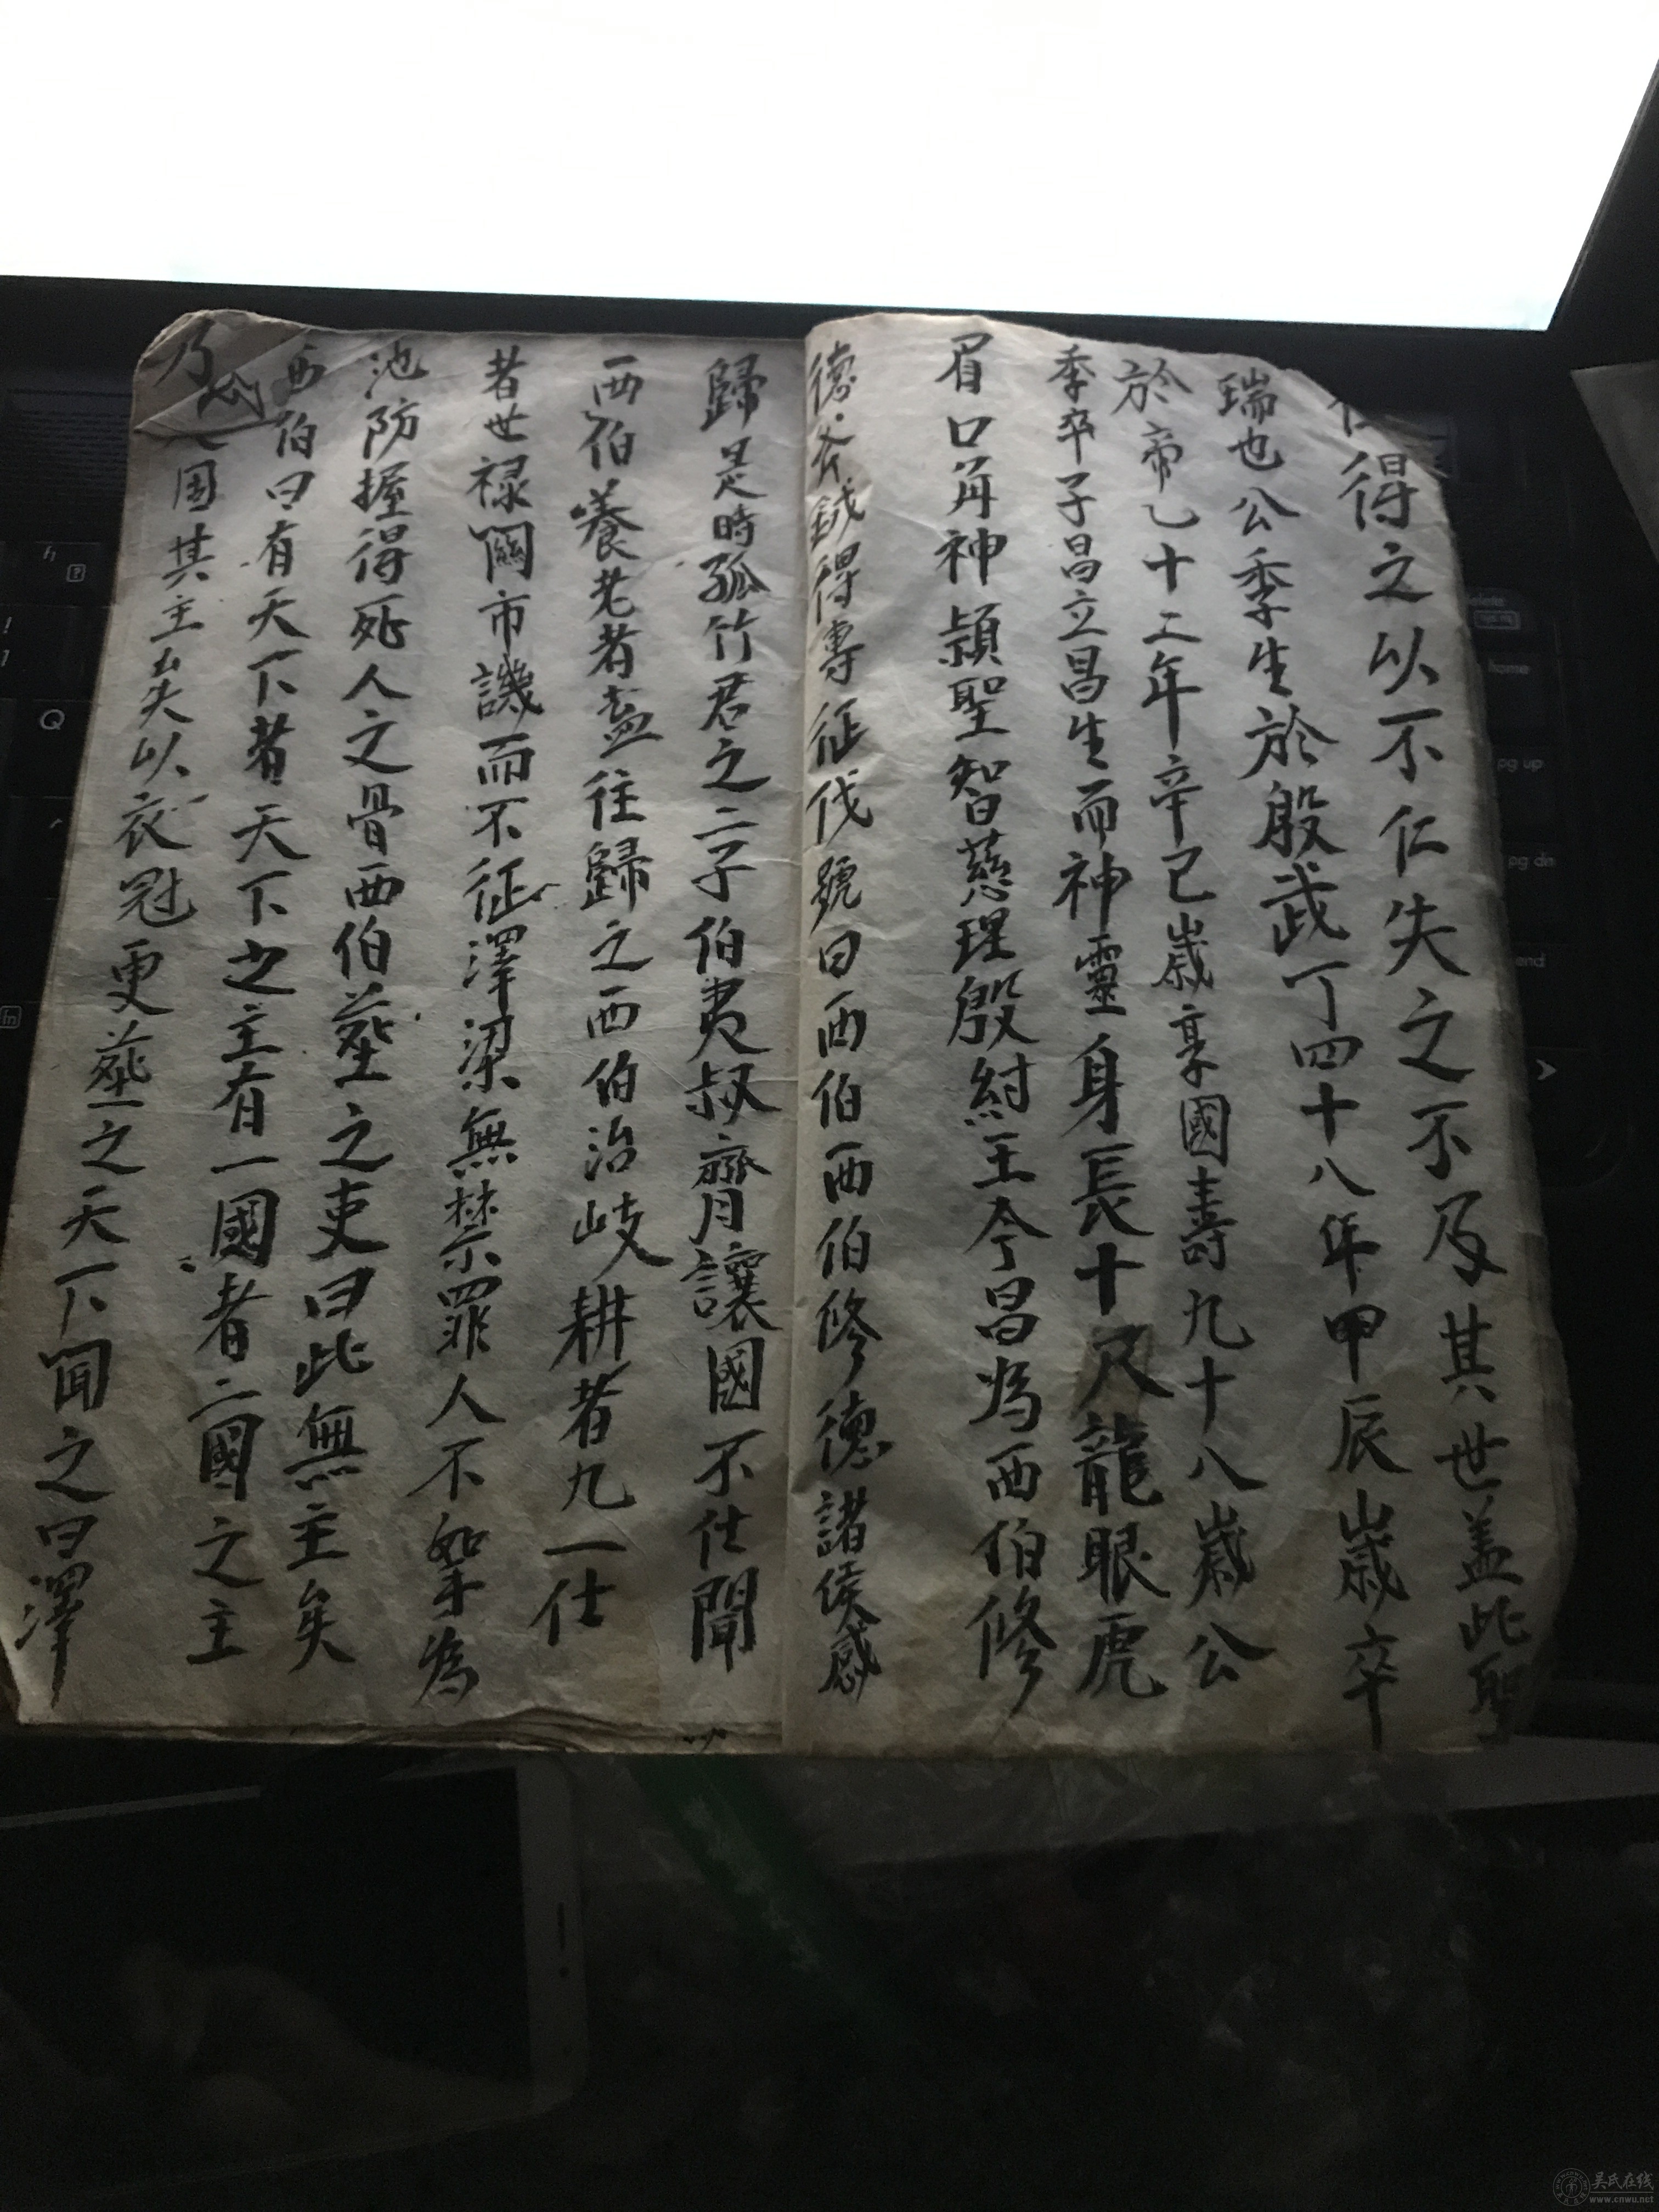 得之以不仁失之不及其世盖此聖
瑞也公季生於殷武丁四十八年甲辰歲卒
於帝乙十二年辛已歲享國壽九十八歲公
季卒子昌立昌生而神靈身長十尺龍眼虎
眉口角神頴聖智慈理殷紂王令昌為西伯修
德斧鉞得專征伐號曰西伯西伯修德諸侯感
歸是時孤竹君之二子伯夷叔齊讓國不仕聞
西伯養老者盍往歸之西伯治岐耕者九一仕
者世禄関市譏而不征澤梁無禁罪人不孥為
池防握得死人之骨西伯塟之吏曰此無主矣
西伯曰有天下者天下之主有一國者一國之主
乃 因其主矣以衣冠更塟之天下聞之曰澤
delete
home
pg up
pg dn
end
fn
Q
!
1
吴氏在线
www.cnwu.net